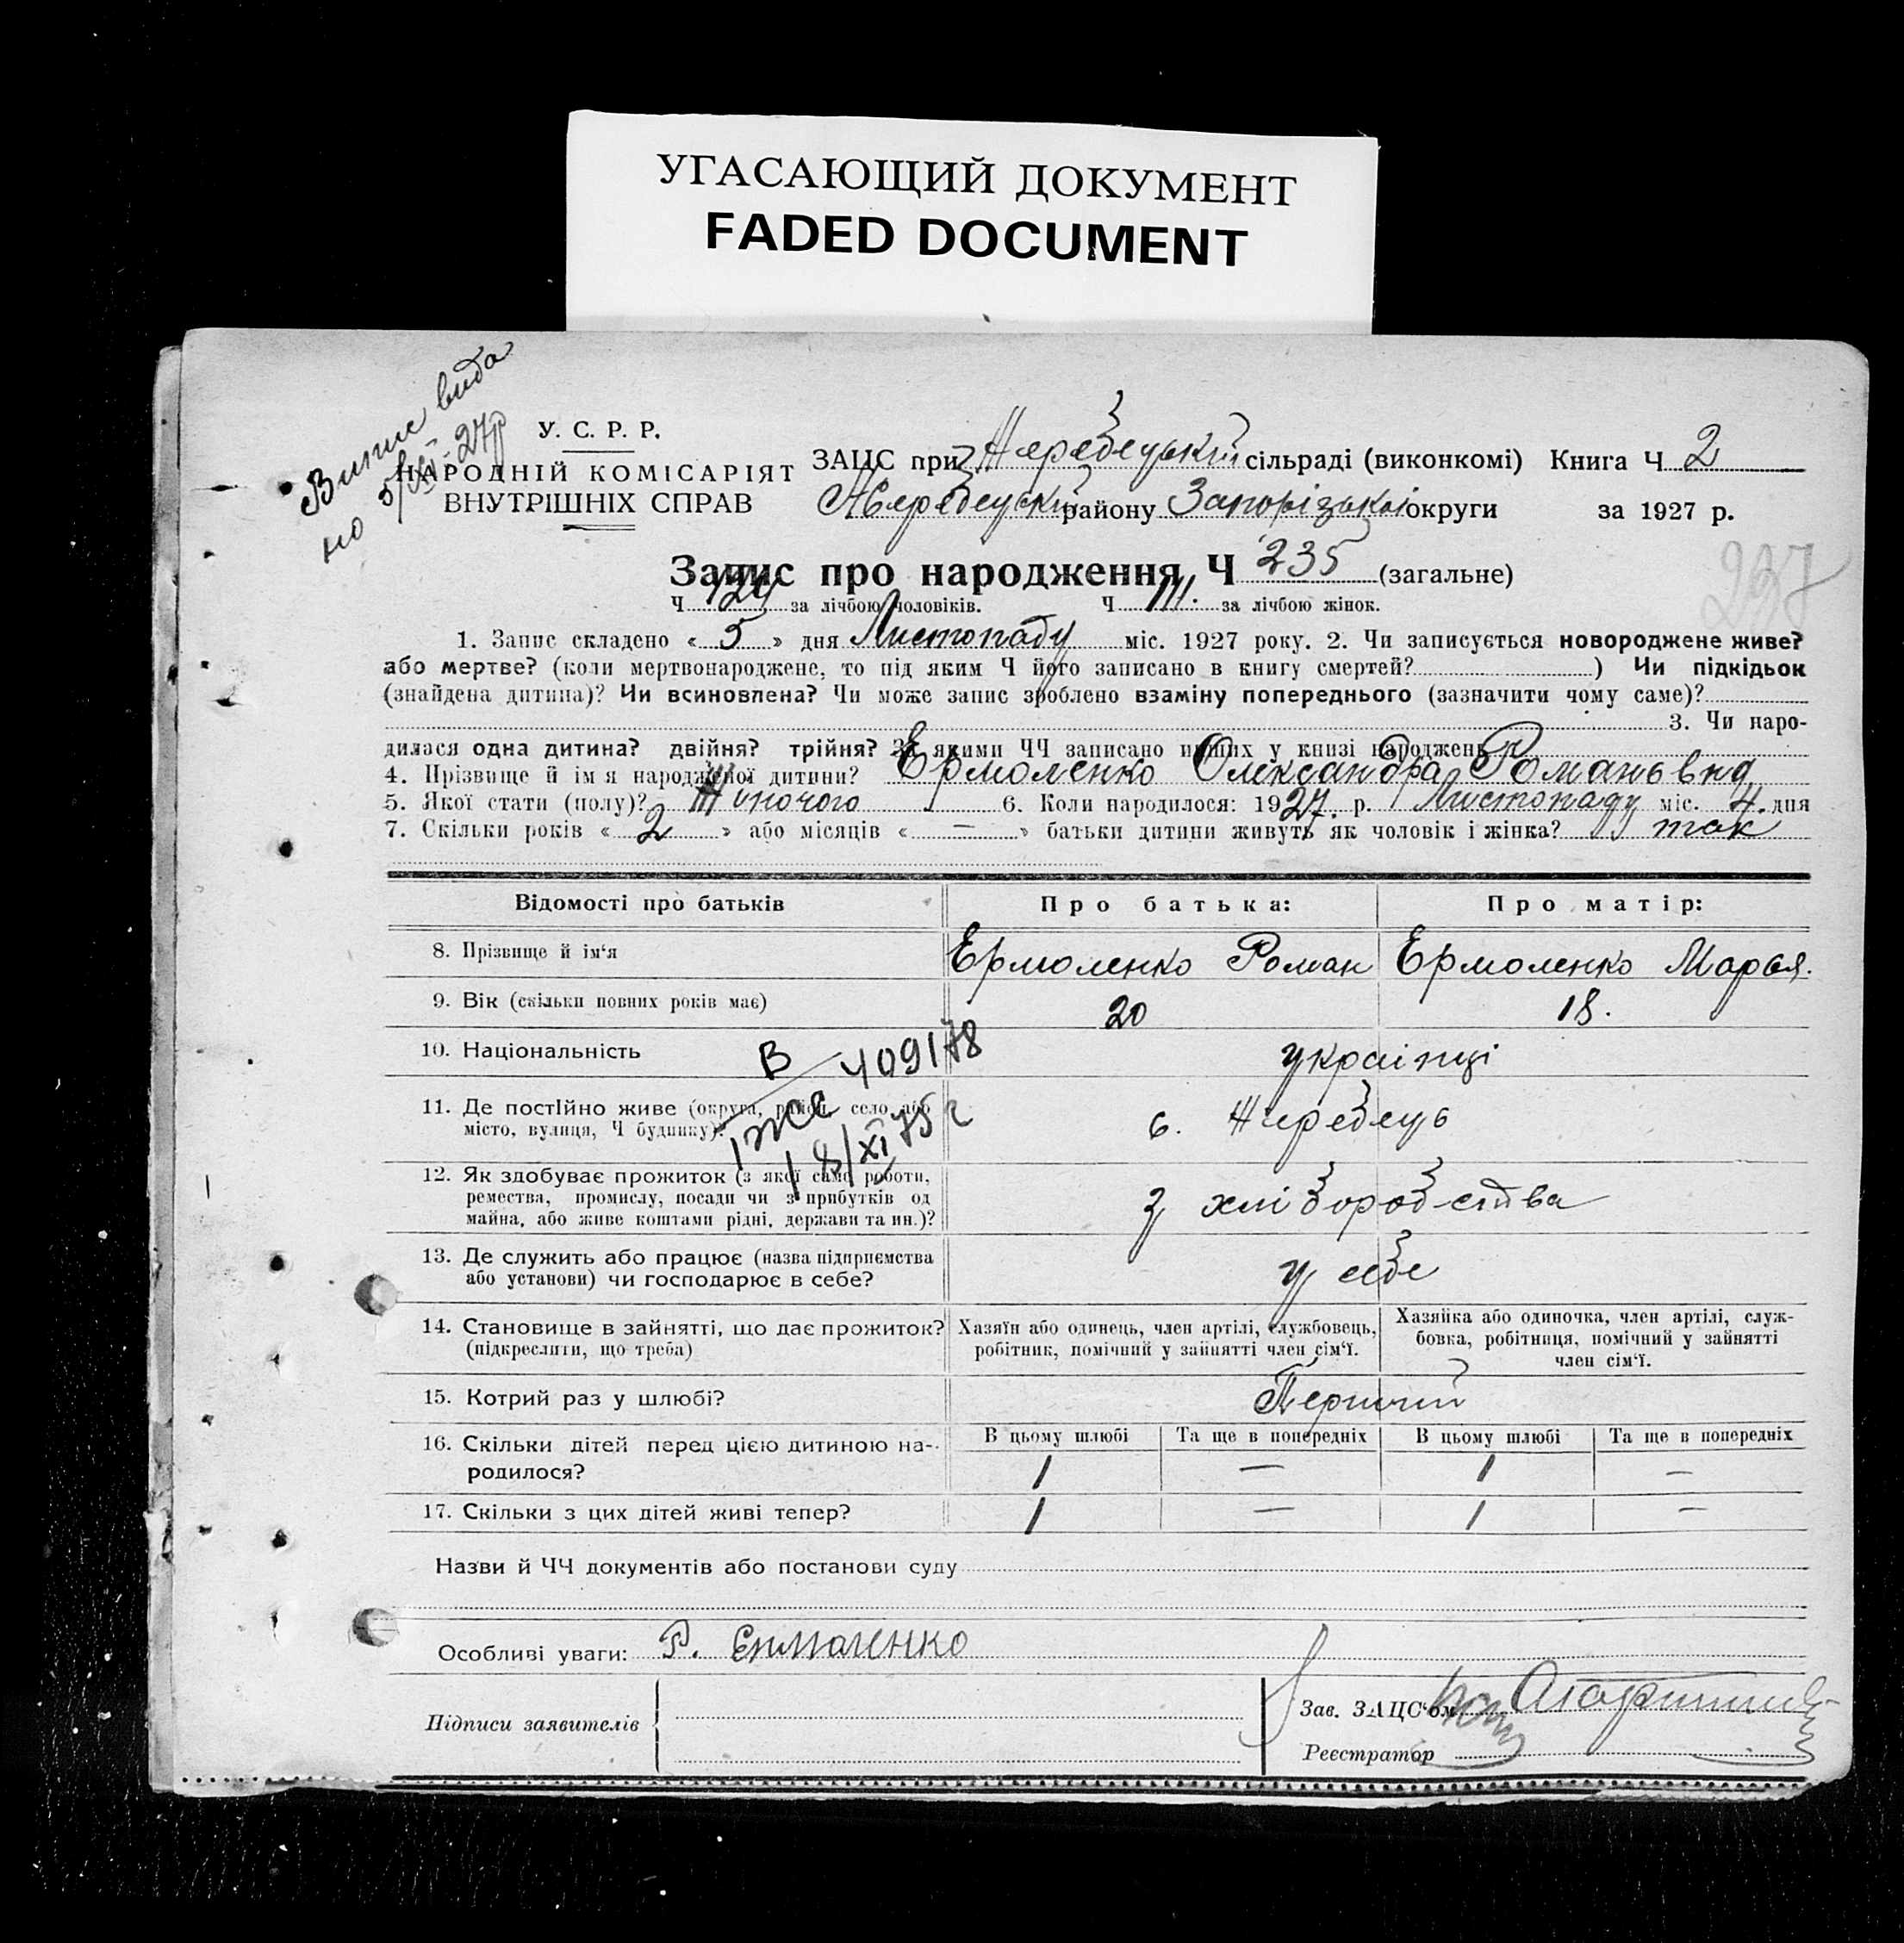 УГАСАЮЩИЙ ДОКУМЕНТ
FADED DOCUMENT
Випис вида
но 5/XI-27р
У. С. Р. Р.
НАРОДНІЙ КОМІСАРІЯТ
ВНУТРІШНІХ СПРАВ
ЗАЦС при Жеребецькій сільраді (виконкомі) Книга Ч 2
району Запорізької округи за 1927 р.
Запис про народження Ч 235 (загальне)
237
Ч 124 за лічбою чоловіків. Ч 111. за лічбою жінок.
1. Запис складено « 5 » дня Листопаду міс. 1927 року. 2. Чи записується новороджене живе?
або мертве? (коли мертвонароджене, то під яким Ч його записано в книгу смертей? ) Чи підкідьок
(знайдена дитина)? Чи всиновлена? Чи може запис зроблено взаміну попереднього (зазначити чому саме)?
3. Чи наро-
дилася одна дитина? двійня? трійня? За якими ЧЧ записано инших у книзі народжень
4. Прізвище й ім'я народженої дитини? Ермоленко Олександра Романьвна
5. Якої стати (полу)? Жіночого 6. Коли народилося: 1927. р. Листопаду міс. 4. дня
7. Скільки років « 2 » або місяців « — » батьки дитини живуть як чоловік і жінка? так
Відомості про батьків Про батька: Про матір:
8. Прізвище й ім'я Ермоленко Роман Ермоленко Марья.
9. Вік (скільки повних років має) 20 18.
10. Національність українці
В 409178
11. Де постійно живе (округа, район, село або
місто, вулиця, Ч будинку)? с. Жеребець
18/XI 75 г
12. Як здобуває прожиток (з якої саме роботи,
ремества, промислу, посади чи з прибутків од
майна, або живе коштами рідні, держави та ин.)? З хліборобства
13. Де служить або працює (назва підприємства
або установи) чи господарює в себе? у себе
14. Становище в зайнятті, що дає прожиток?
(підкреслити, що треба)
Хазяїн або одинець, член артілі, службовець,
робітник, помічний у зайнятті член сім'ї.
Хазяйка або одиночка, член артілі, служ-
бовка, робітниця, помічний у зайнятті
член сім'ї.
15. Котрий раз у шлюбі? Перший
16. Скільки дітей перед цією дитиною на-
родилося?
В цьому шлюбі Та ще в попередніх В цьому шлюбі Та ще в попередніх
1 — 1 —
17. Скільки з цих дітей живі тепер? 1 — 1 —
Назви й ЧЧ документів або постанови суду
Особливі уваги: Р. Ермоленко
Підписи заявителів
Зав. ЗАЦС'ом
Реєстратор